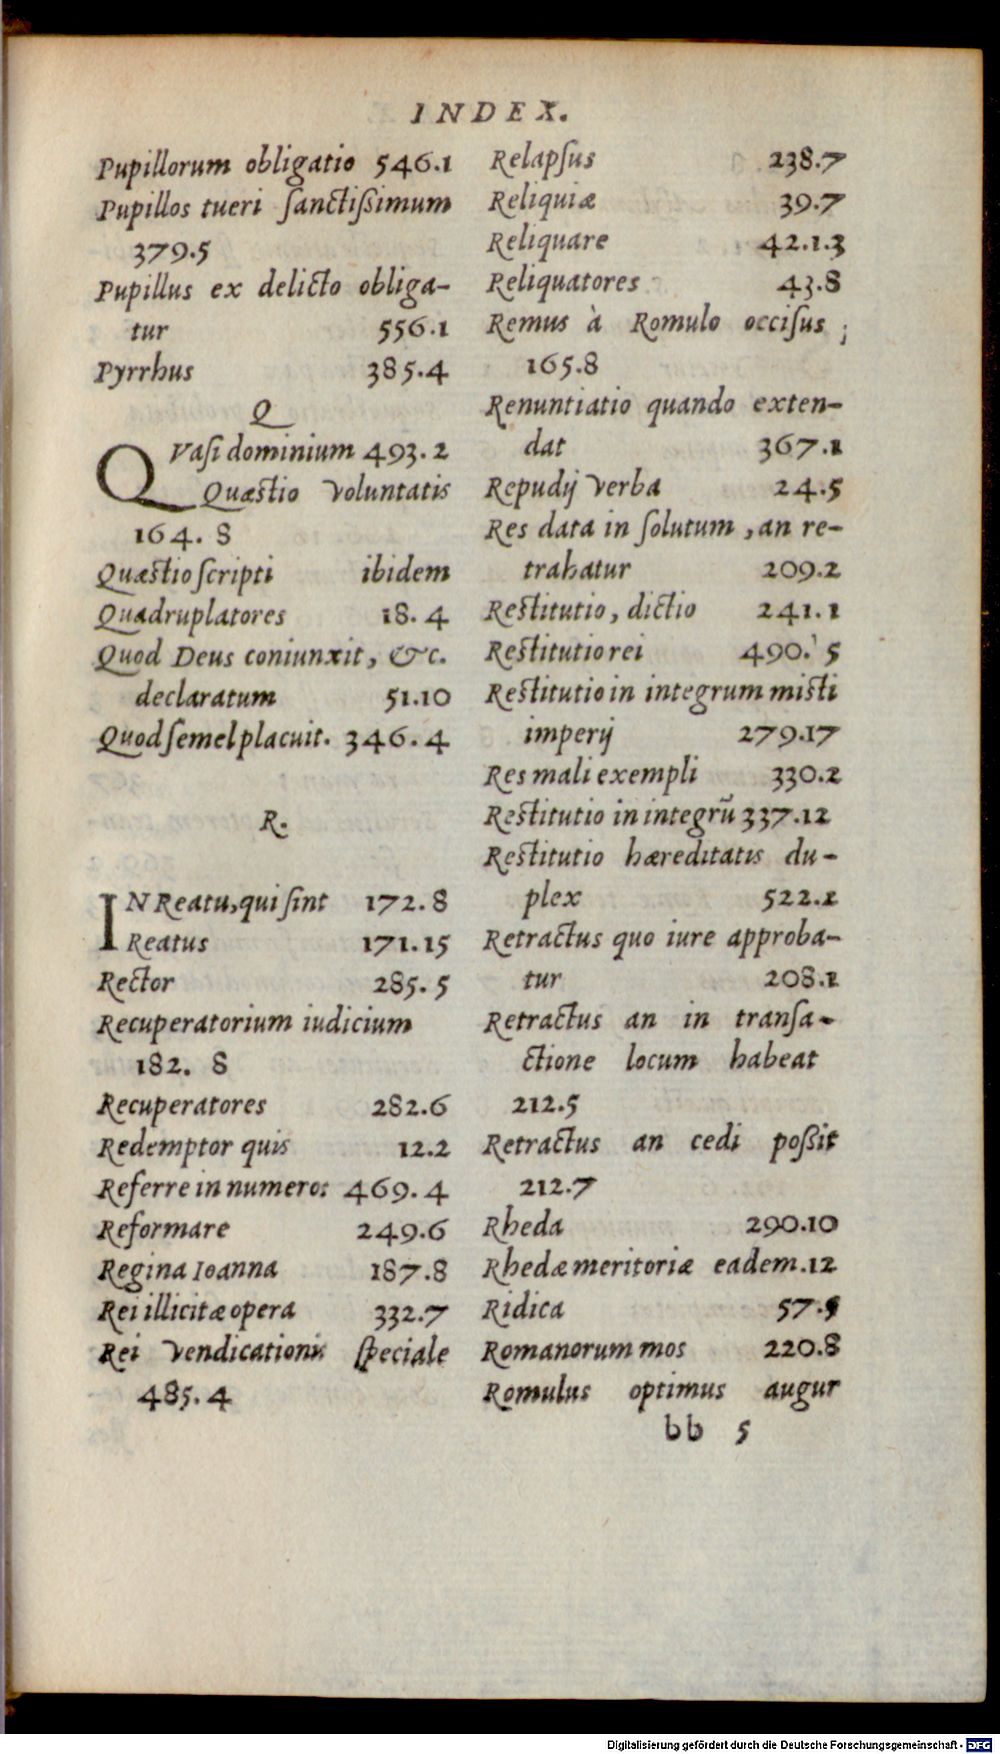 INDEX.
Pupillorum obligatio 546.1
Pupillos tueri ſanctiſsimum
379.5
Pupillus ex delicto obliga-
tur 556.1
Pyrrhus 385.4
Q
QVaſi dominium 493.2
Quæstio voluntatis
164. 8
Quæstio ſcripti ibidem
Quadruplatores 18. 4
Quod Deus coniunxit, &c.
declaratum 51.10
Quod ſemel placuit. 346.4
R.
IN Reatu, qui ſint 172. 8
Reatus 171.15
Rector 285. 5
Recuperatorium iudicium
182. 8
Recuperatores 282.6
Redemptor quis 12.2
Referre in numeros 469. 4
Reformare 249.6
Regina Ioanna 187.8
Rei illicitæ opera 332.7
Rei vendicationis ſpeciale
485. 4
Relapſus 238.7
Reliquiæ 39.7
Reliquare 42.1.3
Reliquatores 43.8
Remus à Romulo occiſus ;
165.8
Renuntiatio quando exten-
dat 367.1
Repudij verba 24.5
Res data in ſolutum, an re-
trahatur 209.2
Restitutio, dictio 241.1
Restitutio rei 490. 5
Restitutio in integrum misti
imperij 279.17
Res mali exempli 330.2
Restitutio in integrũ 337.12
Restitutio hæreditatis du-
plex 522.1
Retractus quo iure approba-
tur 208.1
Retractus an in tranſa-
ctione locum habeat
212.5
Retractus an cedi poſsit
212.7
Rheda 290.10
Rhedæ meritoriæ eadem.12
Ridica 57.5
Romanorum mos 220.8
Romulus optimus augur
bb 5
Digitalisierung gefördert durch die Deutsche Forschungsgemeinschaft - DFG